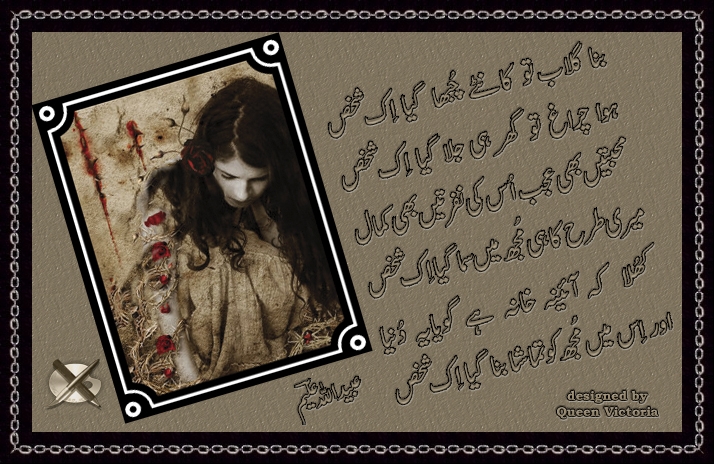 بنا گلاب تو کانٹے چُبھا گیا اِک شخص
ہوا چراغ تو گھر ہی جلا گیا اِک شخص
محبتیں بھی عجب اُس کی نفرتیں بھی کمال
میری طرح کا ہی مُجھ میں سما گیا اِک شخص
کھُلا کہ آئینہ خانہ ہے گویا یہ دُنیا
اور اِس میں مُجھ کو تماشا بنا گیا اِک شخص
عبیداللہ علیم
designed by
Queen Victoria